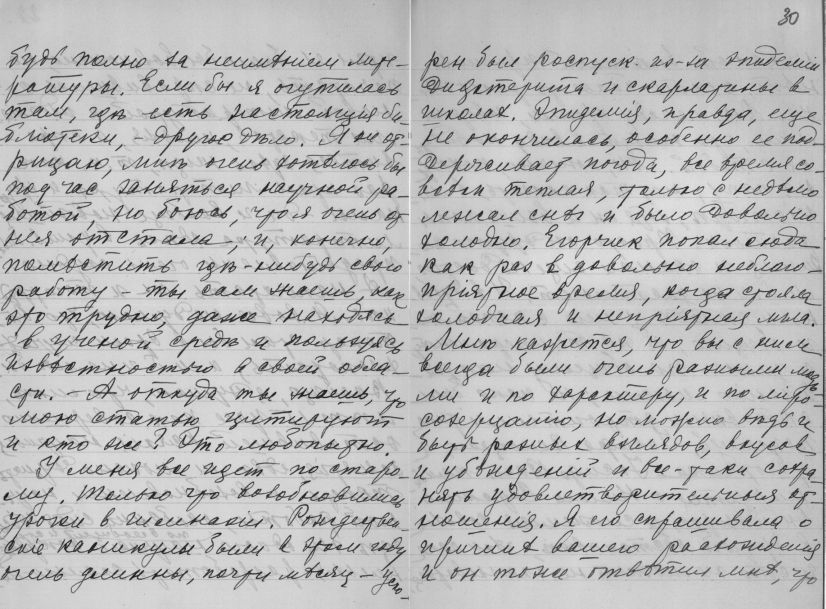 будь полно за неимѣніем лите-
ратуры. Если бы я очутилась
там, гдѣ есть настоящія би-
бліотеки, – другое дѣло. Я не от-
рицаю, мнѣ очень хотѣлось бы
под час заняться научной ра-
ботой, но боюсь, что я очень от
нея отстала, и, конечно,
помѣстить гдѣ-нибудь свою
работу – ты сам знаешь, как
это трудно, даже находясь
в ученой средѣ и пользуясь
извѣстностью в своей обла-
сти. – А откуда ты знаешь, что
мою статью цитируют
и кто же? Это любопытно.
У меня все идет по старо-
му. Только что возобновились
уроки в гимназіи. Рождествен-
скіе каникулы были в этом году
очень длинны, почти мѣсяц –
30
рен был роспуск из-за эпидеміи
дифтерита и скарлатины в
школах. Эпидемія, правда, еще
не окончилась, особенно ее под-
держивает погода, все время со-
всѣм теплая, только с недѣлю
лежал снѣг и было довольно
холодно. Егорчик попал сюда
как раз в довольно неблаго-
пріятное время, когда стояла
холодная и непріятная мгла.
Мнѣ кажется, что вы с ним
всегда были очень разными людь-
ми и по характеру, и по міро-
созерцанію, но можно вѣдь и
быть разных взглядов, вкусов
и убѣждений и все-таки сохра-
нять удовлетворительныя от-
ношенія. Я его спрашивала о
причинѣ вашего расхожденія
и он тоже отвѣтил мнѣ, что